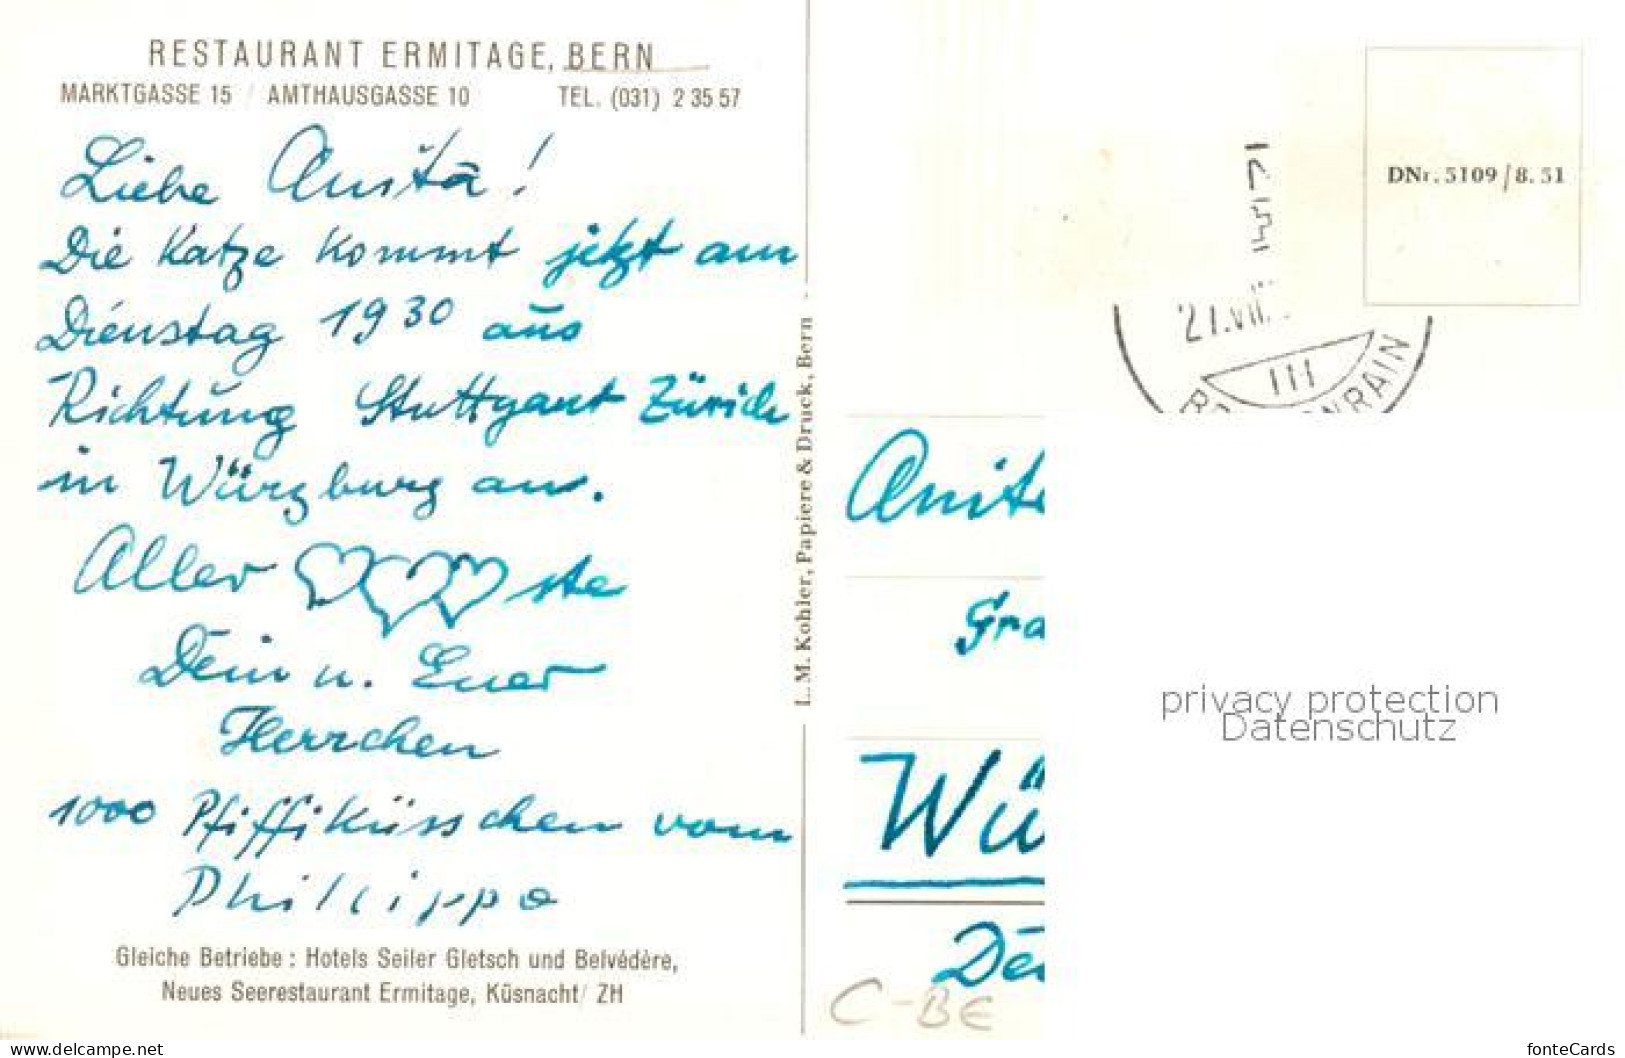 RESTAURANT ERMITAGE, BERN
MARKTGASSE 15 / AMTHAUSGASSE 10 TEL. (031) 2 35 57
Liebe Anita!
Die Katze kommt jetzt am
Dienstag 19 30 aus
Richtung Stuttgart Zürich
in Würzburg an.
Aller ste
Dein u. Euer
Herrchen
1000 Pfiffiküsschen vom
Phillippo
Gleiche Betriebe: Hotels Seiler Gletsch und Belvédère,
Neues Seerestaurant Ermitage, Küsnacht/ ZH
L. M. Kohler, Papiere & Druck, Bern
DNr. 5109/8. 51
27.VII.
III
Anita
Gra
Wü
De
C-BE
privacy protection
Datenschutz
www.delcampe.net
fonteCards